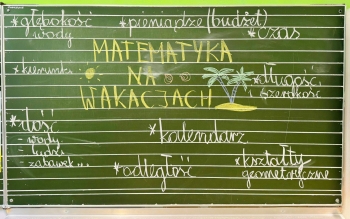 *głębokość
wody
*pieniądze (budżet)
*czas
MATEMATYKA
NA
WAKACJACH
*kierunki
*długość
i szerokość
*ilość
- wody
- ludzi
- zabawek...
*kalendarz
*odległość
*kształty
geometryczne